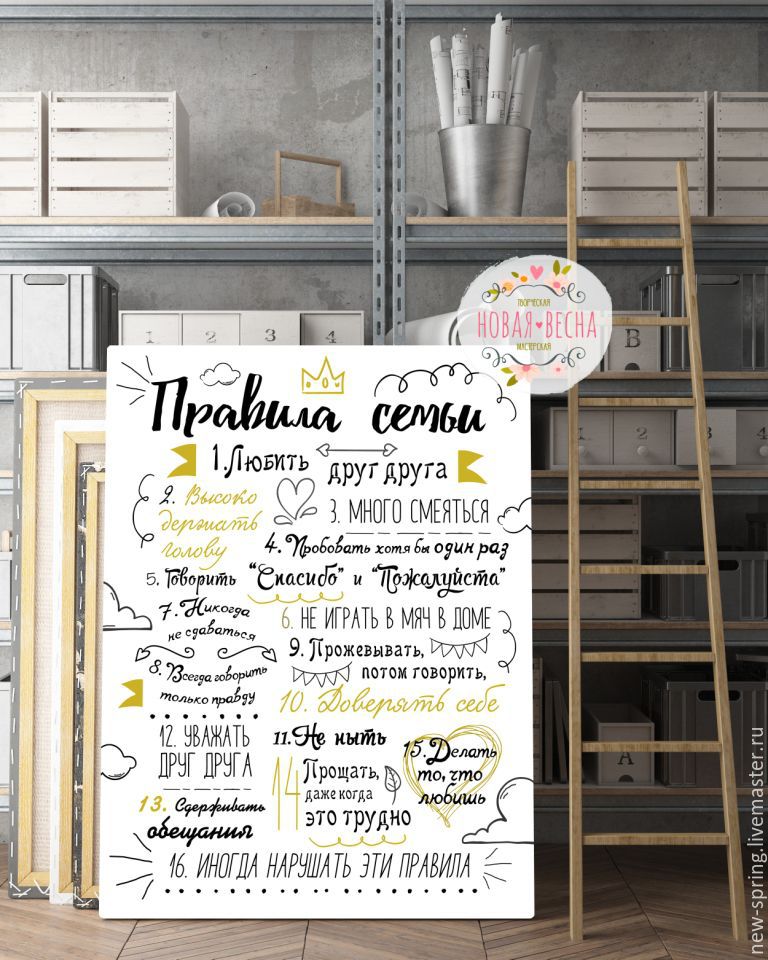 ТВОРЧЕСКАЯ
НОВАЯ ВЕСНА
МАСТЕРСКАЯ
1 2 3 4
B
1 2 3 4
A
Правила семьи
1. Любить друг друга
2. Высоко
держать
голову
3. МНОГО СМЕЯТЬСЯ
4. Пробовать хотя бы один раз
5. Говорить "Спасибо" и "Пожалуйста"
6. НЕ ИГРАТЬ В МЯЧ В ДОМЕ
7. Никогда
не сдаваться
8. Всегда говорить
только правду
9. Прожевывать,
потом говорить,
10. Доверять себе
11. Не ныть
12. УВАЖАТЬ
ДРУГ ДРУГА
13. Сдерживать
обещания
14 Прощать,
даже когда
это трудно
15. Делать
то, что
любишь
16. ИНОГДА НАРУШАТЬ ЭТИ ПРАВИЛА
new-spring.livemaster.ru